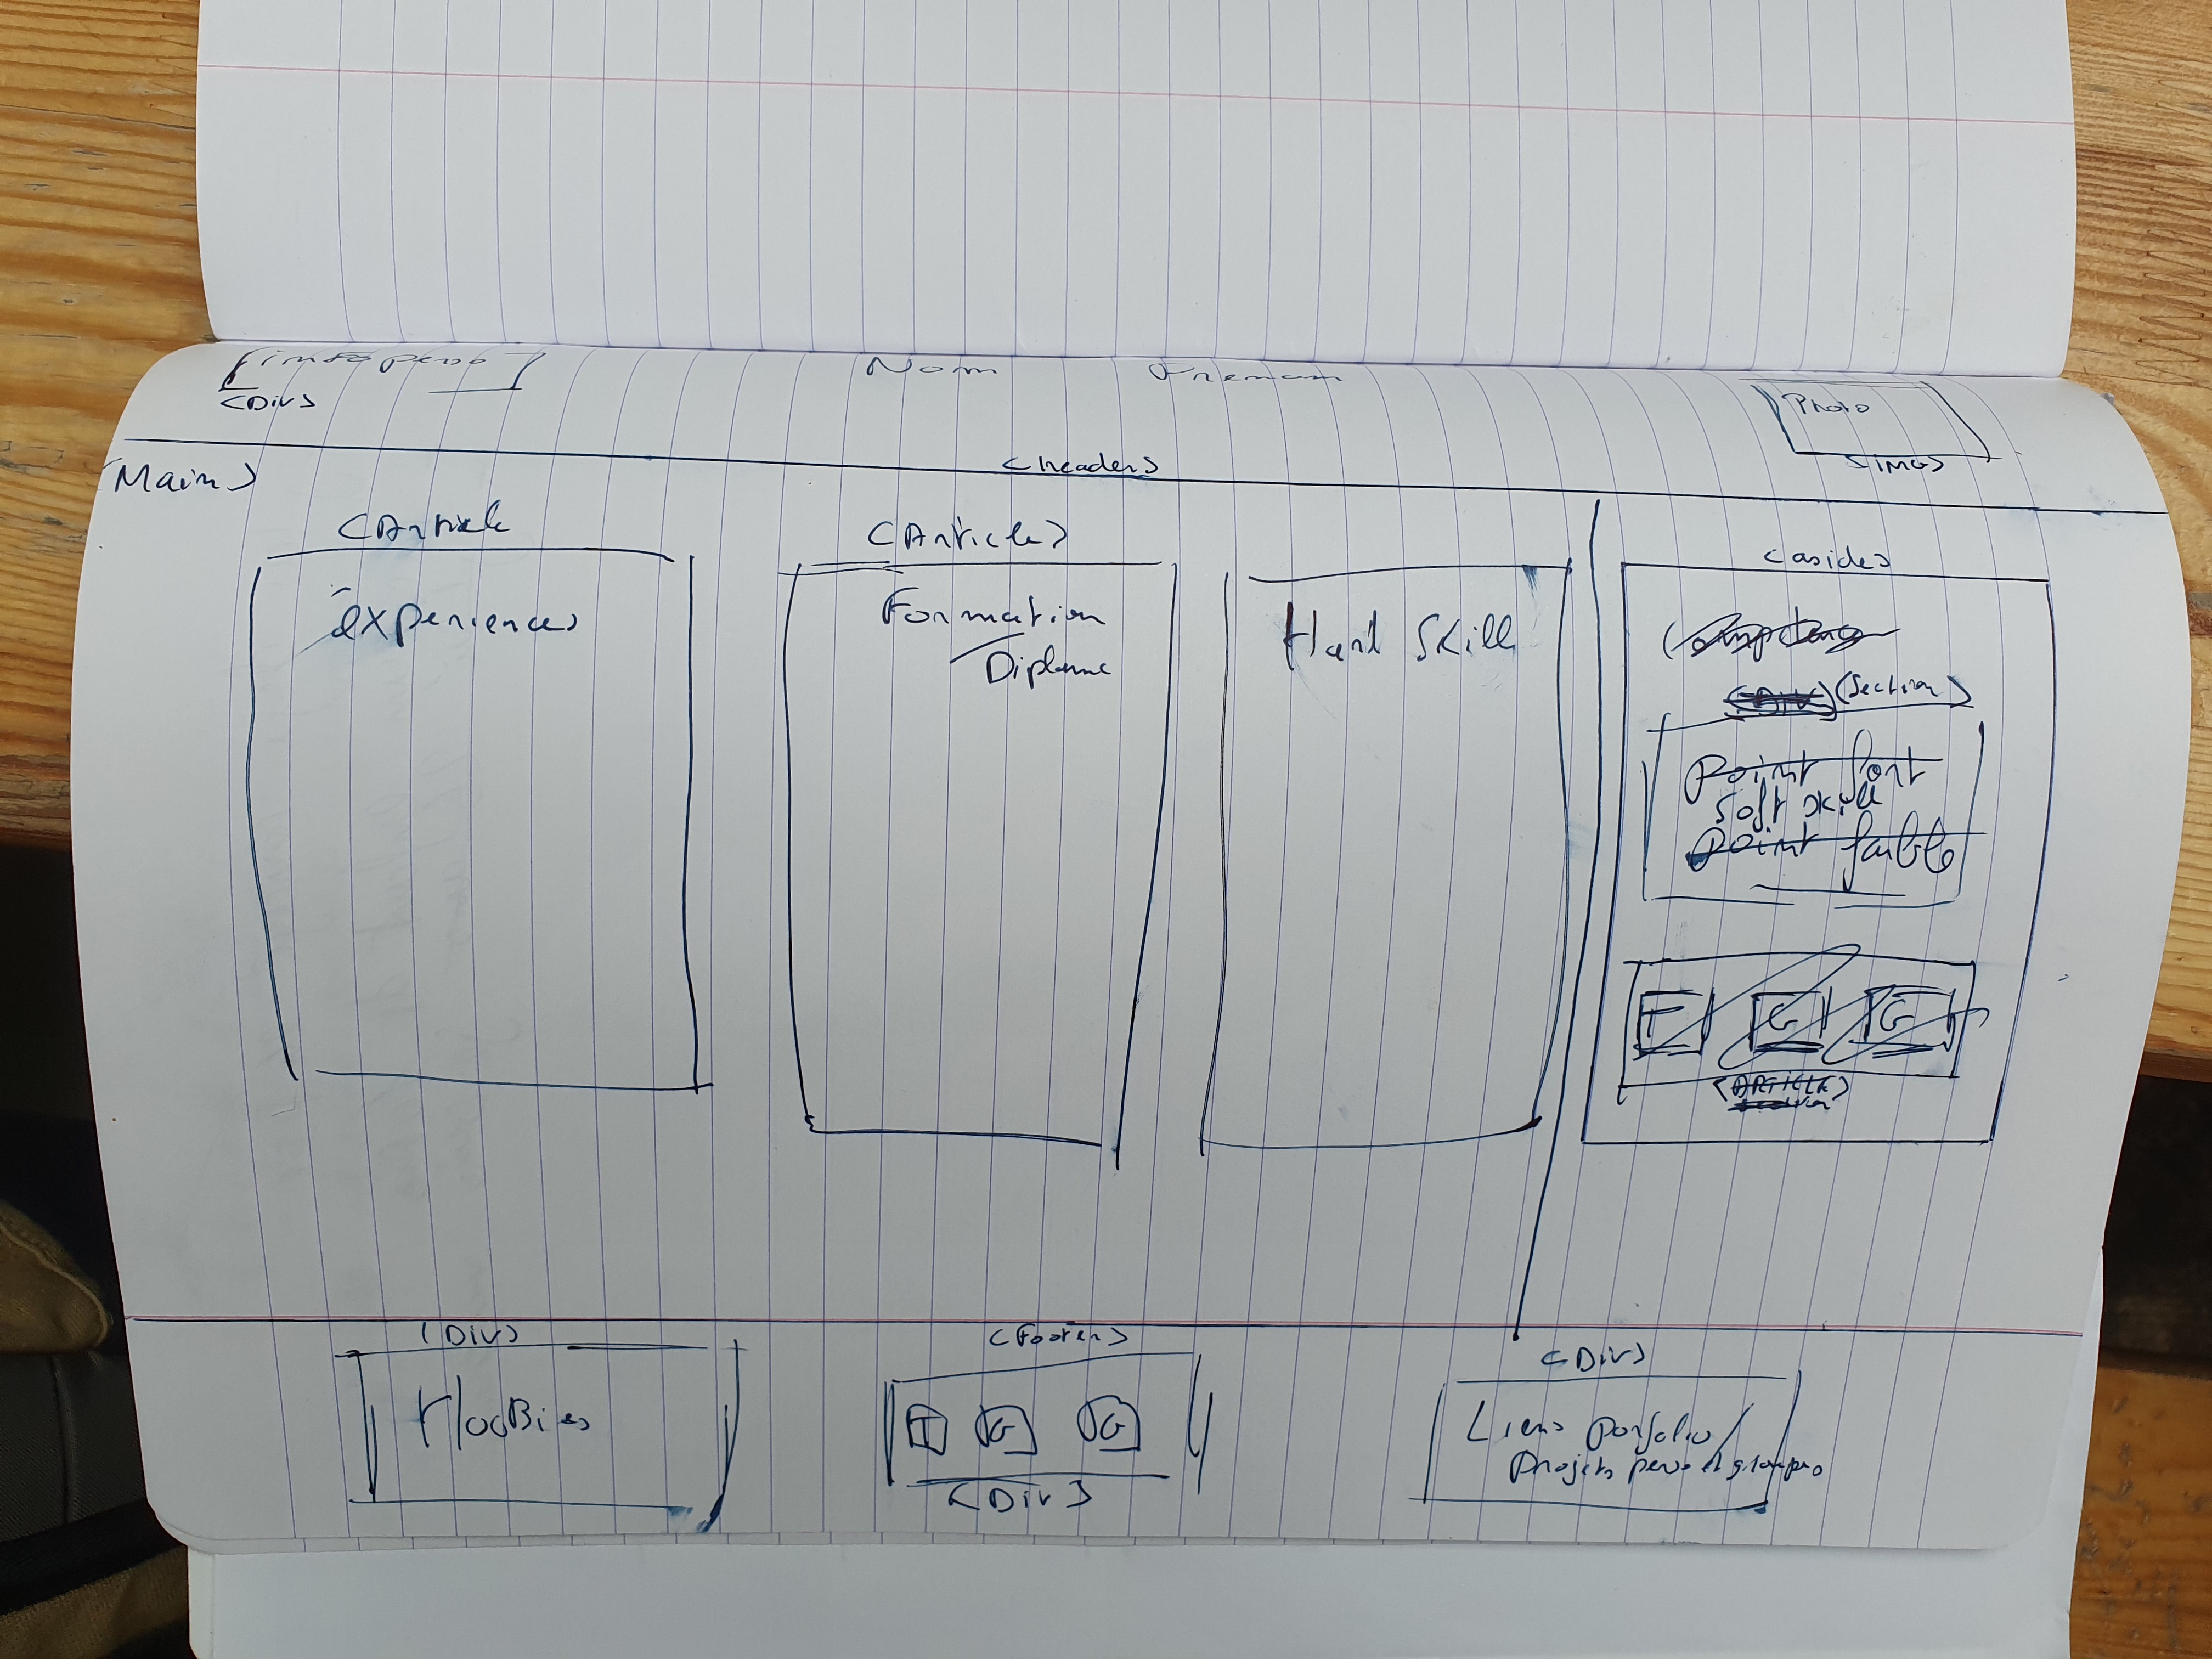 info perso
<Div>
Nom Prenom
Photo
<img>
<header>
<Main>
<Article
expériences
<Article>
Formation
Diplome
Hard Skill
<aside>
<Div> <Section>
Point fort
Soft skill
Point faible
T G G
<ARTICLE>
<Div>
Hobbies
<Footer>
T G G
<Div>
<Div>
Liens porfolio/
Projets perso et